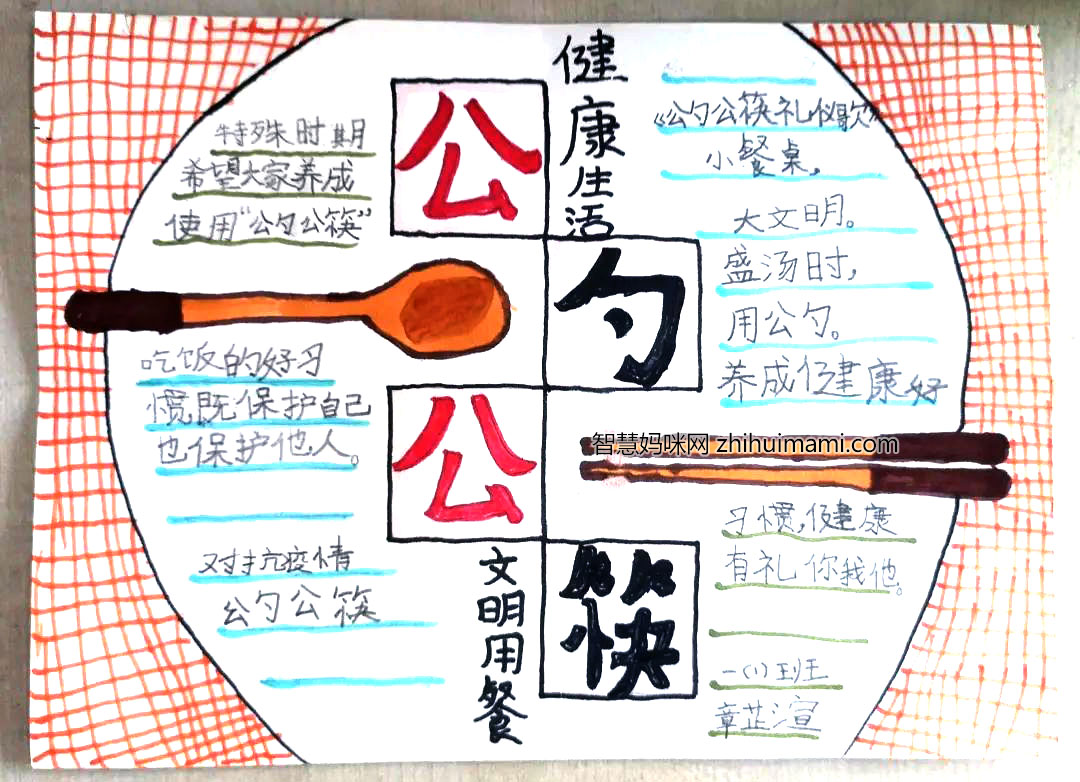 公
勺
公
筷
健康生活
文明用餐
特殊时期
希望大家养成
使用“公勺公筷”
吃饭的好习
惯既保护自己
也保护他人。
对抗疫情
公勺公筷
《公勺公筷礼仪歌》
小餐桌,
大文明。
盛汤时,
用公勺。
养成健康好
习惯,健康
有礼你我他。
一(1)班
章芷渲
智慧妈咪网 zhihuimami.com